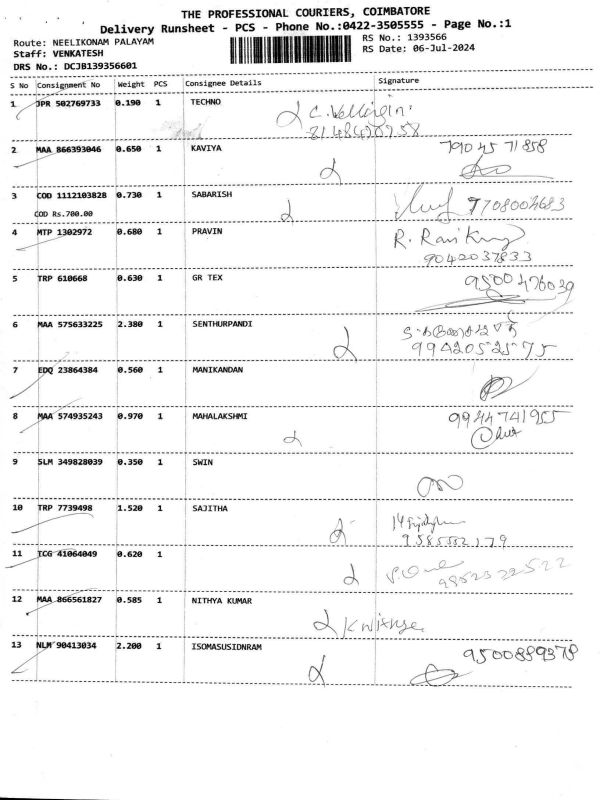 THE PROFESSIONAL COURIERS, COIMBATORE
Delivery Runsheet - PCS - Phone No.:0422-3505555 - Page No.:1
Route: NEELIKONAM PALAYAM
Staff: VENKATESH
DRS No.: DCJB139356601
RS No.: 1393566
RS Date: 06-Jul-2024
S No Consignment No Weight PCS Consignee Details Signature
1 JPR 502769733 0.190 1 TECHNO
2 MAA 866393046 0.650 1 KAVIYA 7904571858
3 COD 1112103828 0.730 1 SABARISH 7708004683
COD Rs.700.00
4 MTP 1302972 0.680 1 PRAVIN R. Ravi Kumar
9042037833
5 TRP 610668 0.630 1 GR TEX 9500476039
6 MAA 575633225 2.380 1 SENTHURPANDI
9942052575
7 EDQ 23864384 0.560 1 MANIKANDAN
8 MAA 574935243 0.970 1 MAHALAKSHMI 9944741955
9 SLM 349828039 0.350 1 SWIN
10 TRP 7739498 1.520 1 SAJITHA
9585552179
11 TCG 41064049 0.620 1
9952322522
12 MAA 866561827 0.585 1 NITHYA KUMAR
13 NLM 90413034 2.200 1 ISOMASUSIDNRAM 9500889378